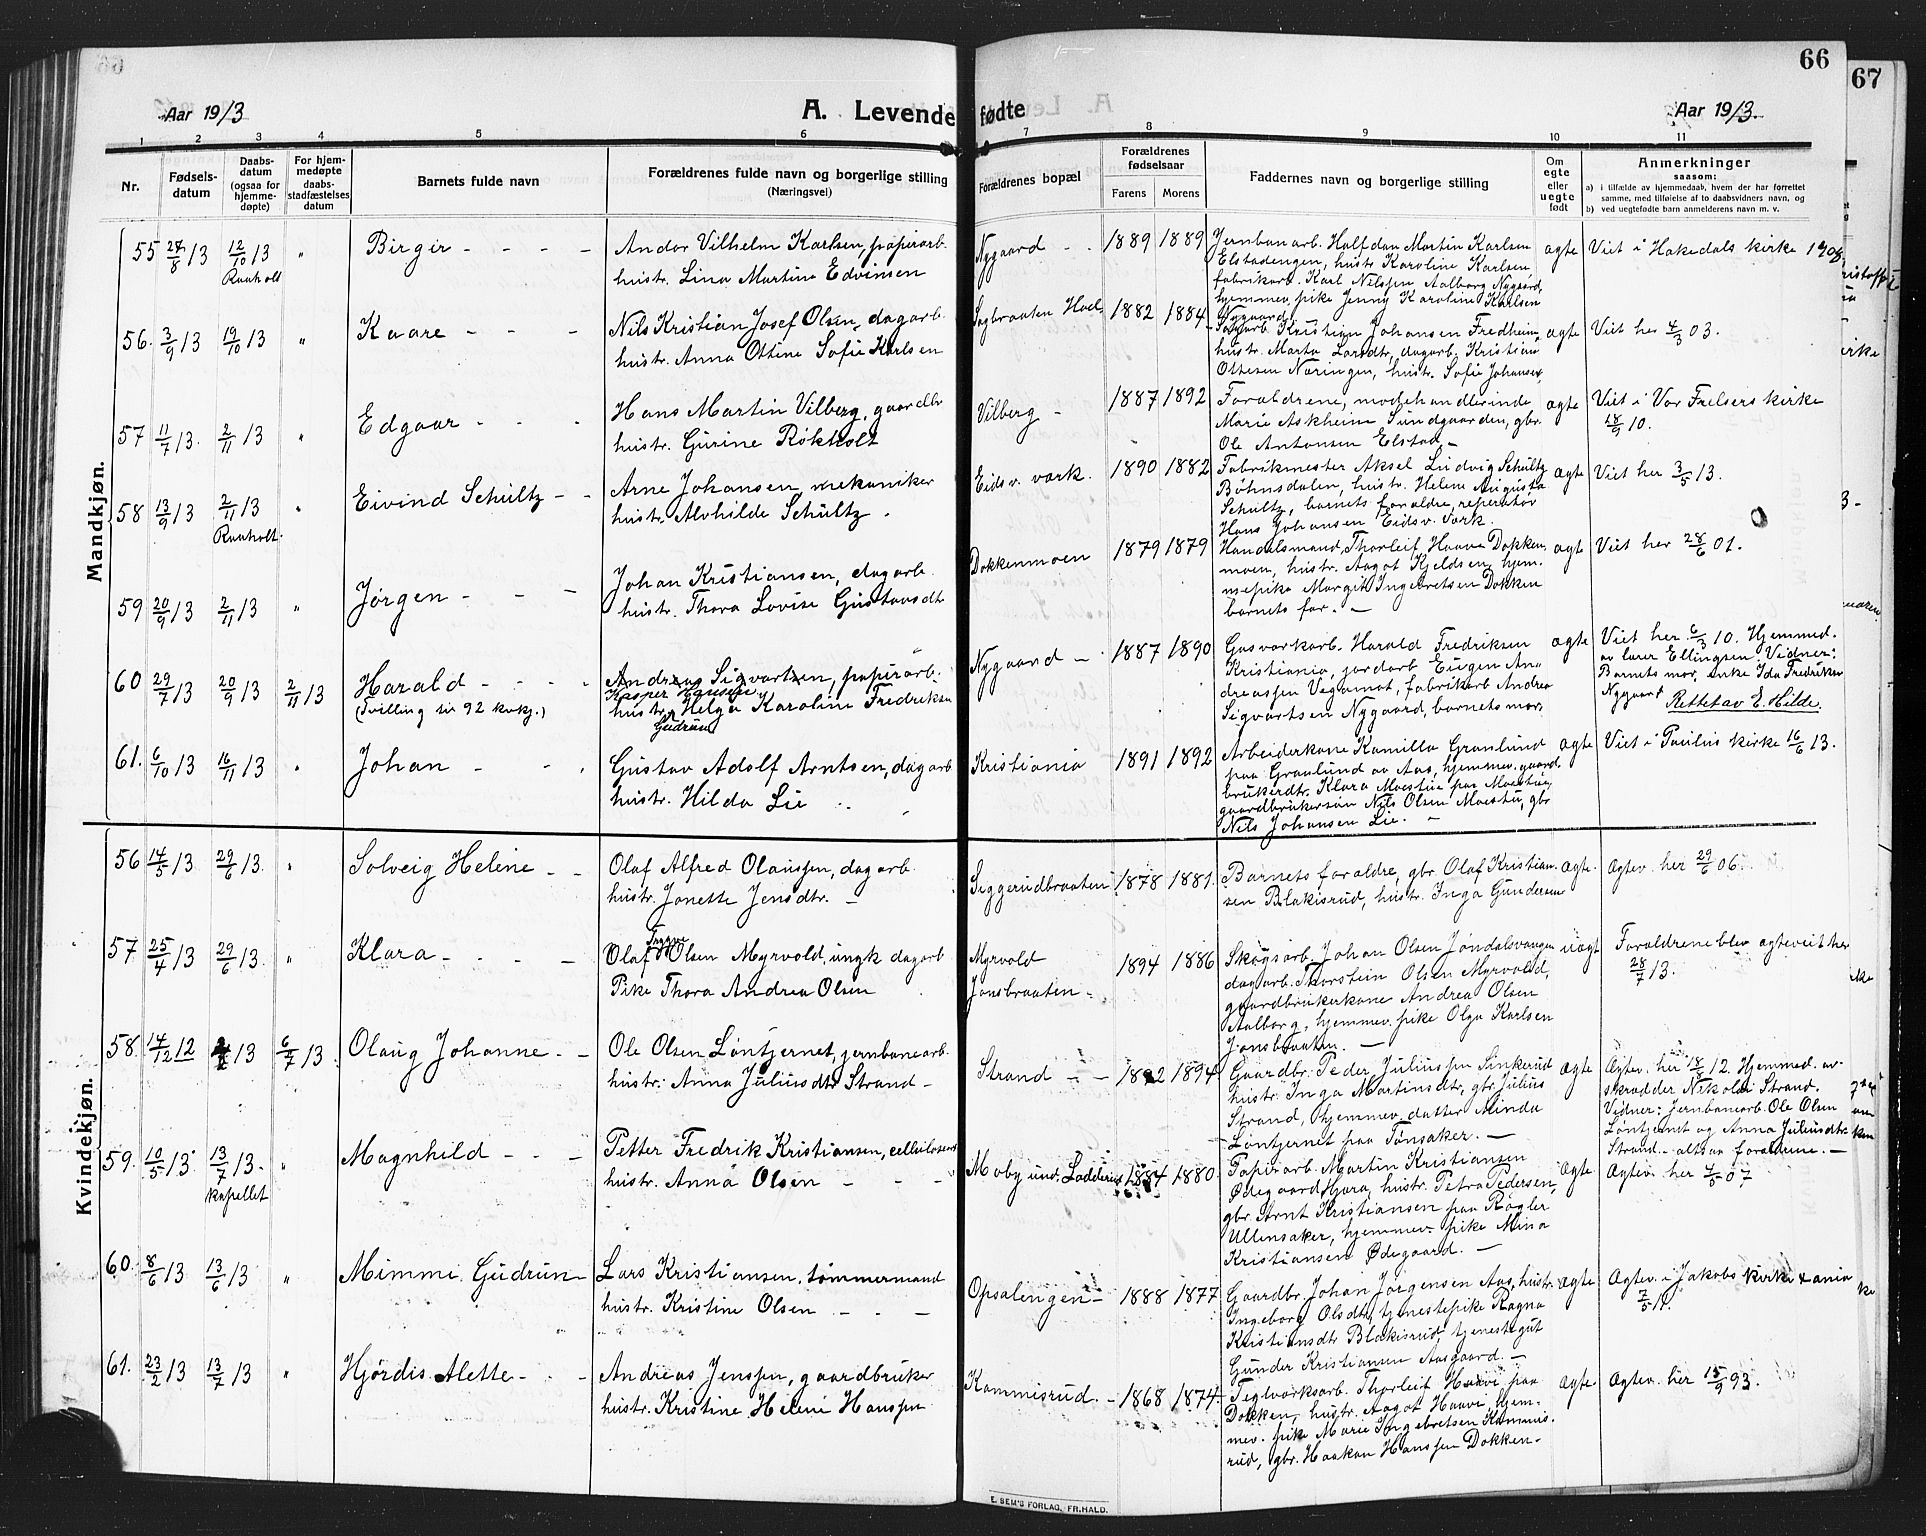 66
67
Aar 1913
A. Levende fødte
Aar 1913.
1 2 3 4 5 6 7 8 9 10 11
Nr.
Fødsels-
datum
Daabs-
datum
(ogsaa for
hjemme-
døpte)
For hjem-
medøpte
daabs-
stadfæstelses
datum
Barnets fulde navn
Forældrenes fulde navn og borgerlige stilling
(Næringsvei)
Forældrenes bopæl
Forældrenes
fødselsaar
Farens Morens
Faddernes navn og borgerlige stilling
Om
egte
eller
uegte
født
Anmerkninger
saasom:
a) i tilfælde av hjemmedaab, hvem der har forrettet
samme, med tilføielse af to daabsvidners navn, og
b) ved uegtefødt barn anmelderens navn m. v.
Mandkjøn.
55 27/8 13 12/10 13 Raaholt "
Birgir - - - -
Andor Vilhelm Karlsen, papirarb.
hustr. Lina Martine Edvinsen
Nygaard - -
1889 1889
Jernbanarb. Halfdan Martin Karlsen
Elstadengen, hustr. Karoline Karlsen,
fabrikarb. Karl Nilssen Aalborg Nygaard,
hjemmev. pike Jenny Karoline Karlsen
Nygaard
ægte
Viet i Hakedals kirke 1908
56. 3/9 13 19/10 13 "
Kaare - - -
Nils Kristian Josef Olsen, dagarb.
hustr. Anna Ottine Sofie Karlsen
Sagbraaten Hoel
1882 1884
Dagarb. Kristian Johansen Fredheim,
hustr. Marta Larsdtr, dagarb. Kristian
Ottesen Næringen, hustr. Sofie Johansen,
ægte
Viet her 4/3 03.
57 11/7 13. 2/11 13 "
Edgaar - - -
Hans Martin Vilberg, gaardbr
hustr. Gurine Røkholt
Vilberg -
1887 1892
Forældrene, modehandlerinde
Marie Askheim Sundgaarden, gbr.
Ole Antonsen Elstad -
ægte
Viet i Vor Frelsers kirke
18/9 10.
58 13/9 13 2/11 13 Raaholt. "
Eivind Schultz - -
Arne Johansen, mekaniker
hustr. Alvhilde Schültz.
Eidsv. værk.
1890 1882
Fabrikmester Aksel Ludvig Schultz
Bøhnsdalen, hustr. Helene Augusta
Schultz, barnets forældre, reperatør
Hans Johansen Eidsv. Værk.
ægte
Viet her 3/5 13.
59 20/9 13 2/11 13 "
Jørgen - - -
Johan Kristiansen, dagarb.
hustr. Thora Lovise Gustavsdtr
Dokkenmoen
1879 1879
Handelsmand Thorleif Haave Dokken
moen, hustr. Aagot Kjeldsen, hjem-
mepike Margit Ingebretsen Dokken
barnets far. -
ægte
Viet her 28/6 01.
60 29/7 13 20/9 13 2/11 13
Harald - - - -
(Tvilling sir 92 kvkj.)
Andreas Sigvartsen, papirarb.
Kasper Hansen
hustr. Helga Karoline Fredriksen
Gudrun
Nygaard -
1887 1890
Gasværkarb. Harald Fredriksen
Kristiania, jordarb Eugen An-
dreassen Vegamot, fabrikarb Andrea
Sigvartsen Nygaard, barnets mor,
ægte
Viet her 6/3 10. Hjemmed.
av lærer Ellingsen. Vidner:
Barnets mor, enke Ida Fredriksen
Nygaard Rettet av E. Hilde.
61. 6/10 13 16/11 13 "
Johan - - -
Gustav Adolf Arntsen, dagarb
hustr. Hilda Lie
Kristiania
1891 1892
Arbeiderkone Kamilla Granlund
paa Granlund av Aas, hjemmev. gaard-
brukerdtr. Klara Moestue paa Moestue,
gaardbrukersøn Nils Olsen Moestue, gbr
Nils Johansen Lie. -
ægte
Viet i Paulus kirke 16/6 13.
Kvindekjøn.
56 14/5 13 29/6 13. "
Solveig Helene - -
Olaf Alfred Olaussen, dagarb.
hustr. Janette Jensdtr. -
Seggerudbraaten
1878 1881.
Barnets forældre, gbr. Olaf Kristian-
sen Blakisrud, hustr. Inga Gundersen
ægte.
Ægtev. her 29/6 06.
57 25/4 13 29/6 13. "
Klara - - - -
Trygve
Olaf Olsen Myrvold, ungk dagarb
Pike Thora Andrea Olsen
Myrvold
Jonsbraaten -
1894 1886
Skogsarb. Johan Olsen Jøndalsvangen
dagarb. Thorstein Olsen Myrvold,
gaardbrukerkone Andrea Olsen
Aalborg, hjemmev. pike Olga Karlsen
Jonsbraaten. -
uægt
Forældrene blev ægteviet her
28/7 13.
58. 14/12 12 13 6/7 13.
Olaug Johanne - -
Ole Olsen Løntjernet, jernbanearb.
hustr. Anna Juliusdtr Strand -
Strand - -
1892 1894
Gaardbr. Peder Juliussen Sinkerud
hustr. Inga Martinsdtr, gbr. Julius
Strand, hjemmev. datter Minda
Løntjernet paa Tønsaker. -
ægte
Ægtev. her 18/8 12. Hjemmed. av
skrædder Nikolai Strand.
Vidner: Jernbanearb. Ole Olsen
Løntjernet og Anna Juliusdtr
Strand - altsaa forældrene. -
59. 10/5 13 13/7 13. Kapellet "
Magnhild - - -
Petter Fredrik Kristiansen, cellulosearb
hustr. Anna Olsen - - -
Moby und. Ladderud
1884 1880
Papirarb. Martin Kristiansen
Ødegaard Hjera, hustr. Petra Pedersen,
gbr. Arnt Kristiansen paa Røgler
Ullensaker, hjemmev. pike Mina
Kristiansen Ødegaard. -
ægte
Ægtev. her 4/5 07
60. 8/6 13 13/6 13 "
Mimmi Gudrun -
Lars Kristiansen, tømmermand
hustr. Kristine Olsen - - -
Opsalengen -
1888 1877
Gaardbr. Johan Jørgensen Aas, hustr.
Ingeborg Olsdtr, tjenestepike Ragna
Kristiansdtr Blakisrud, tjenestegut
Gunder Kristiansen Aasgaard. -
ægte
Ægtev. i Jakobs kirke x ania
7/5 11.
61. 23/2 13 13/7 13 "
Hjørdis Alette - -
Andreas Jenssen, gaardbruker
hustr. Kristine Heleni Hanssen
Kommisrud. -
1868 1874.
Teglværksarb. Thorleif Haave paa
Dokken, hustr. Aagot Haave, hjem-
mev. pike Marie Ingebretsen Kommis-
rud, gbr. Haakon Hanssen Dokken -
ægte
Ægtev. her 15/9 93.
E. SEM'S FORLAG, FR.HALD.